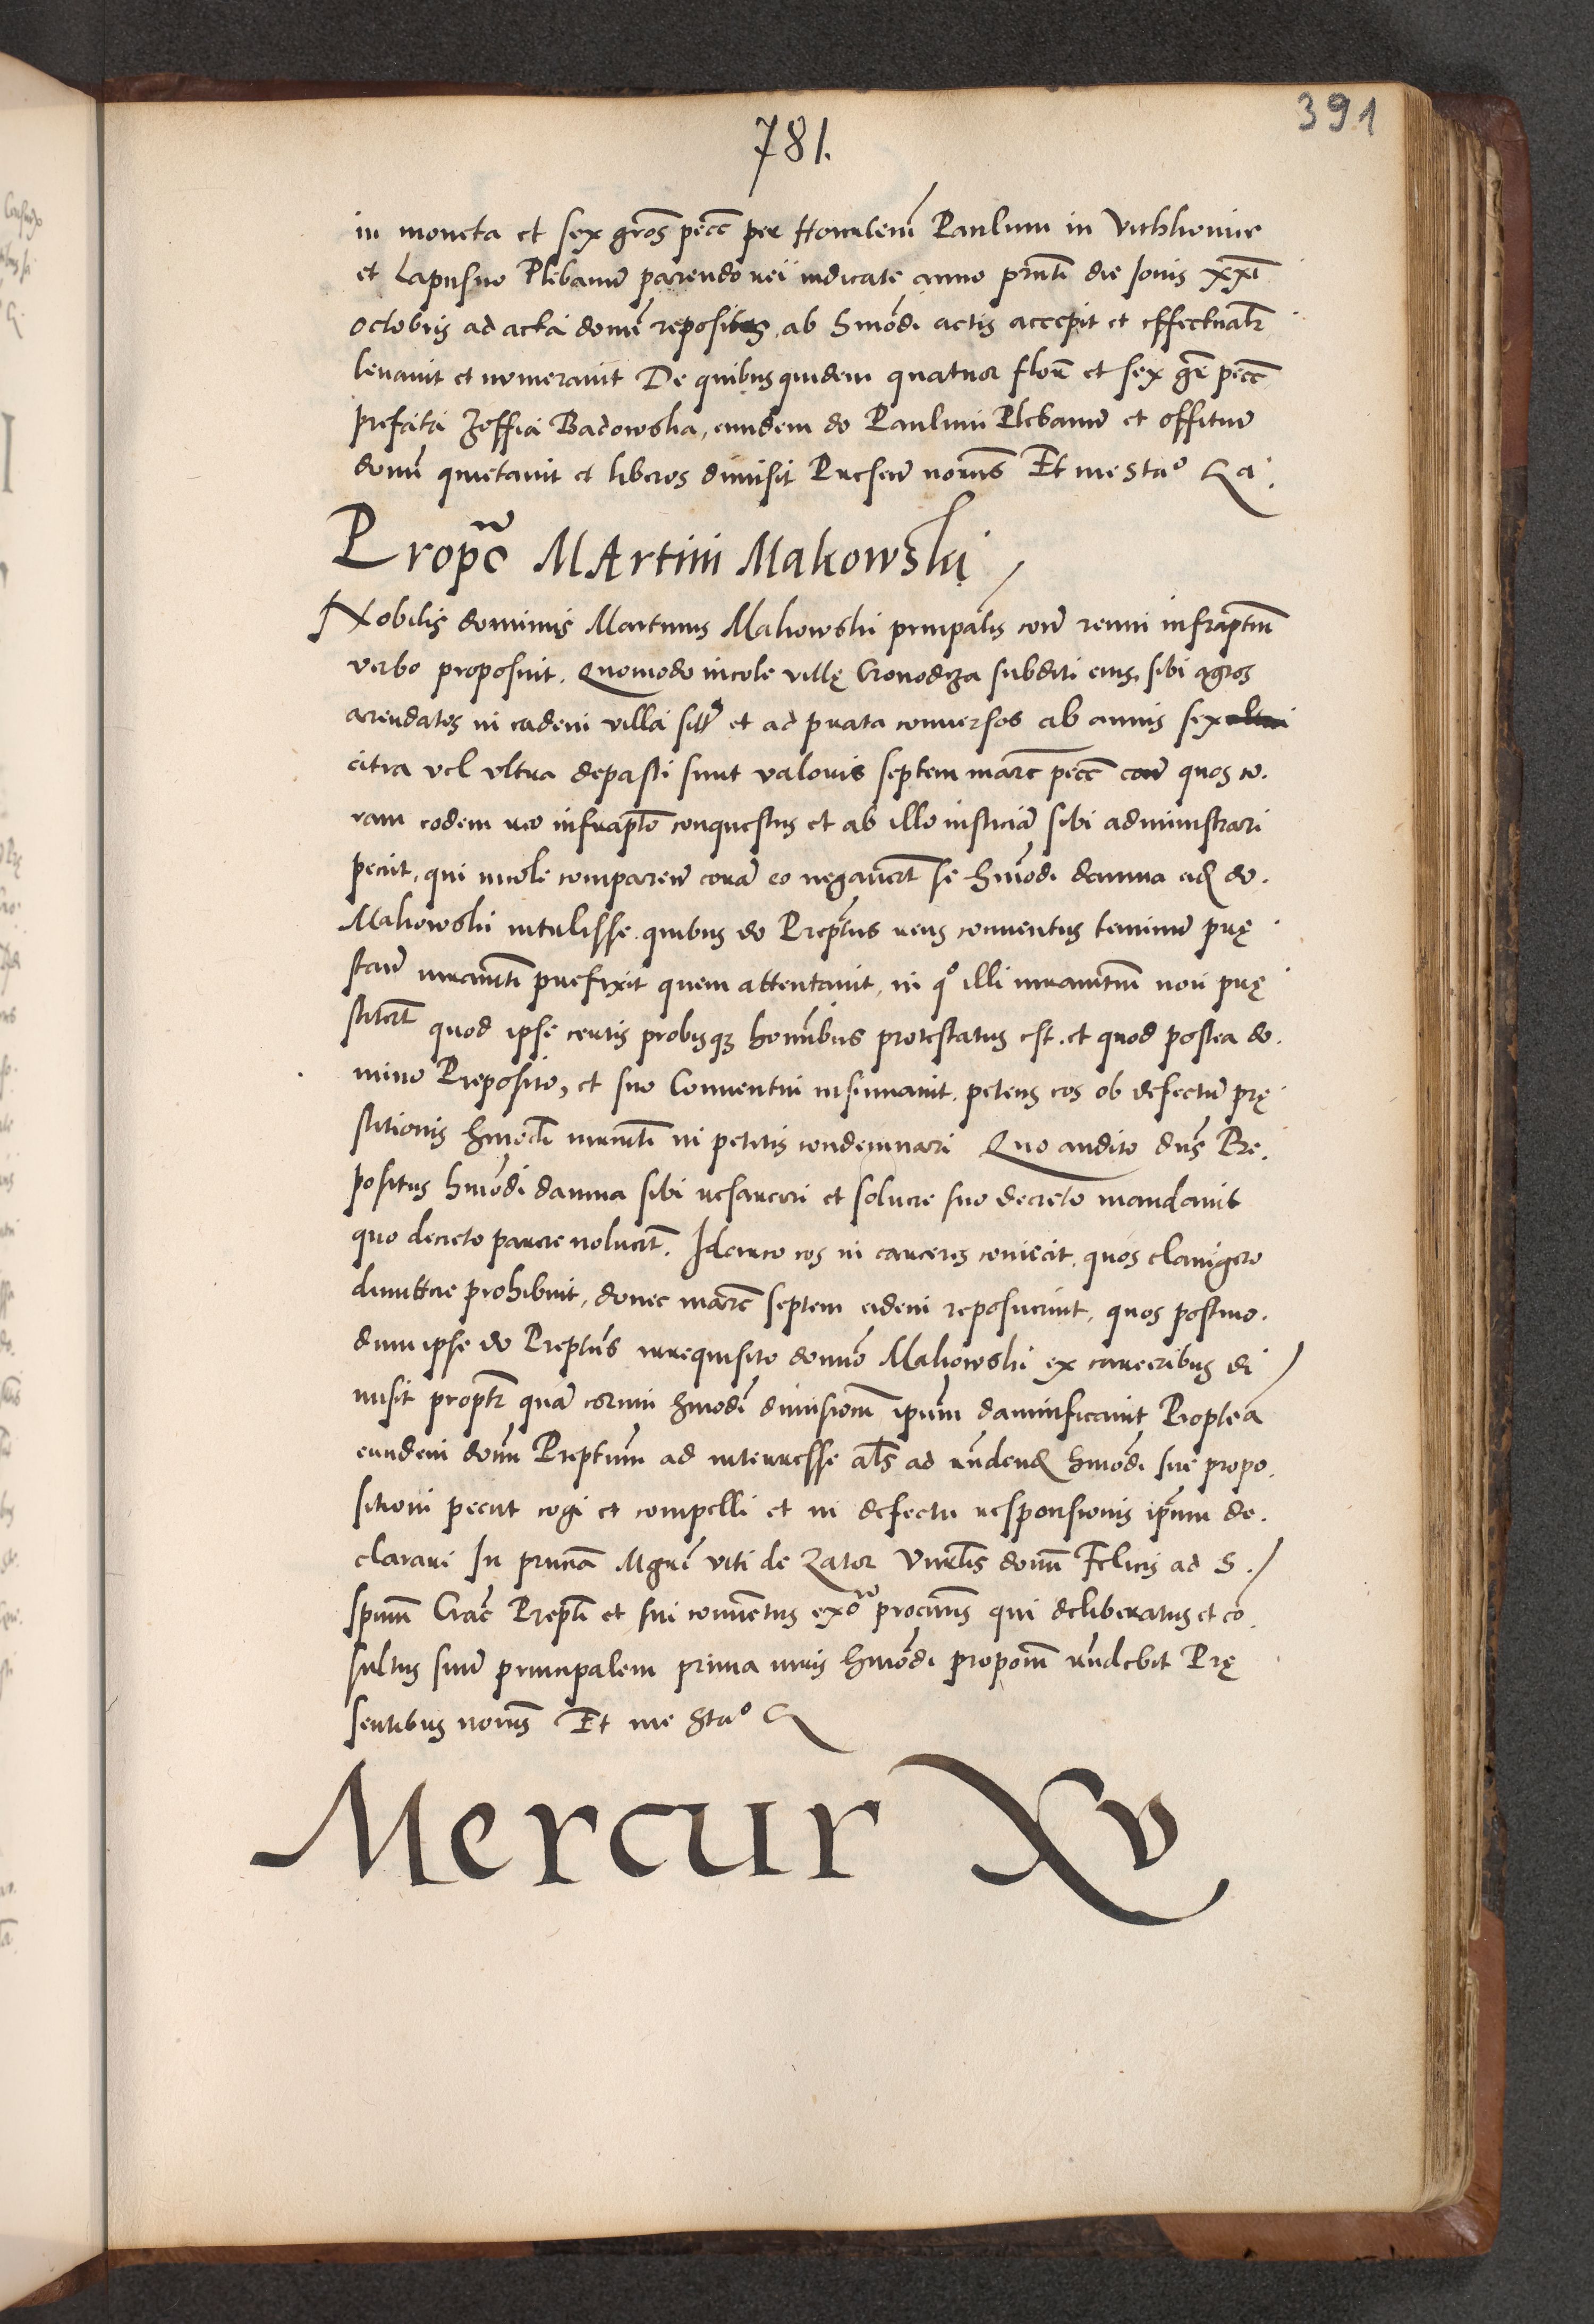 391
781.
in moneta et sex gros pecc per Honilem Paulum in
et Lapusno Plebanum parendo rei iudicate anno prnti die Iovis xxi
octobris ad acta domi repositos, ab hmodi actis accepit et effectualr
levavit et numeravit De quibus quidem quatuor floren et sex gr pecc
prefata Zoffia Badowska, eundem do Paulum Plebanum et offitium
domi quietavit et liberos dimisit Presen nomis Et me Stao
Propo Martini Makowski
Nobilis dominus Martinus Makowski prinpalis coram reum infraptum
verbo proposuit. Quomodo incole ville Cronodza subditi eius, sibi agros
arendatos in eadem villa sitt et ad prata conversos ab annis sex
citra vel ultra depasti sunt valoris septem marc pecc quos co.
ram eodem reo infrapto conquestus et ab illo iusticiam sibi administrari
peciit, qui incole comparen coram eo negavert se hmodi damna eid do.
Makowski intulisse. quibus do Prepitus reus conventus terminum prę
stan iuramti prefixit quem attentavit, in qo illi iuramtum non prę
stitert quod ipse certis probisq hominibus protestatus est. et quod postea do.
mino Preposito, et suo Conventui insinuavit. petens eos ob defectum prę
stitionis hmodi iuramti in petitis condemnari Quo audito dns Pre.
positus hmodi damna sibi resarciri et solvere suo decreto mandavit
quo decreto parere noluert. Idcirco eos in carceres coniecit. quos clavigero
dimittere prohibuit, donec marc septem eidem reposuerint, quos postmo.
dum ipse do Prepitus irrequisito domino Makowski ex carceribus di
misit proptr quam eorum hmodi dimissionem ipsum damnificavit Proptea
eundem domi Prepitum ad interesse als ad rndend hmodi sue propo.
sitioni peciit cogi et compelli et in defectu responsionis ipsum de.
clarari In prnciam Mgri Viti de Zator Virlis domi Felicis ad S.
spum Crac Prepti et sui conventus exo procuris qui deliberatus et co.
sultus suum principalem prima iuris hmodi proponi rndebit Prę
sentibus nomis Et me Stao
Mercur XV